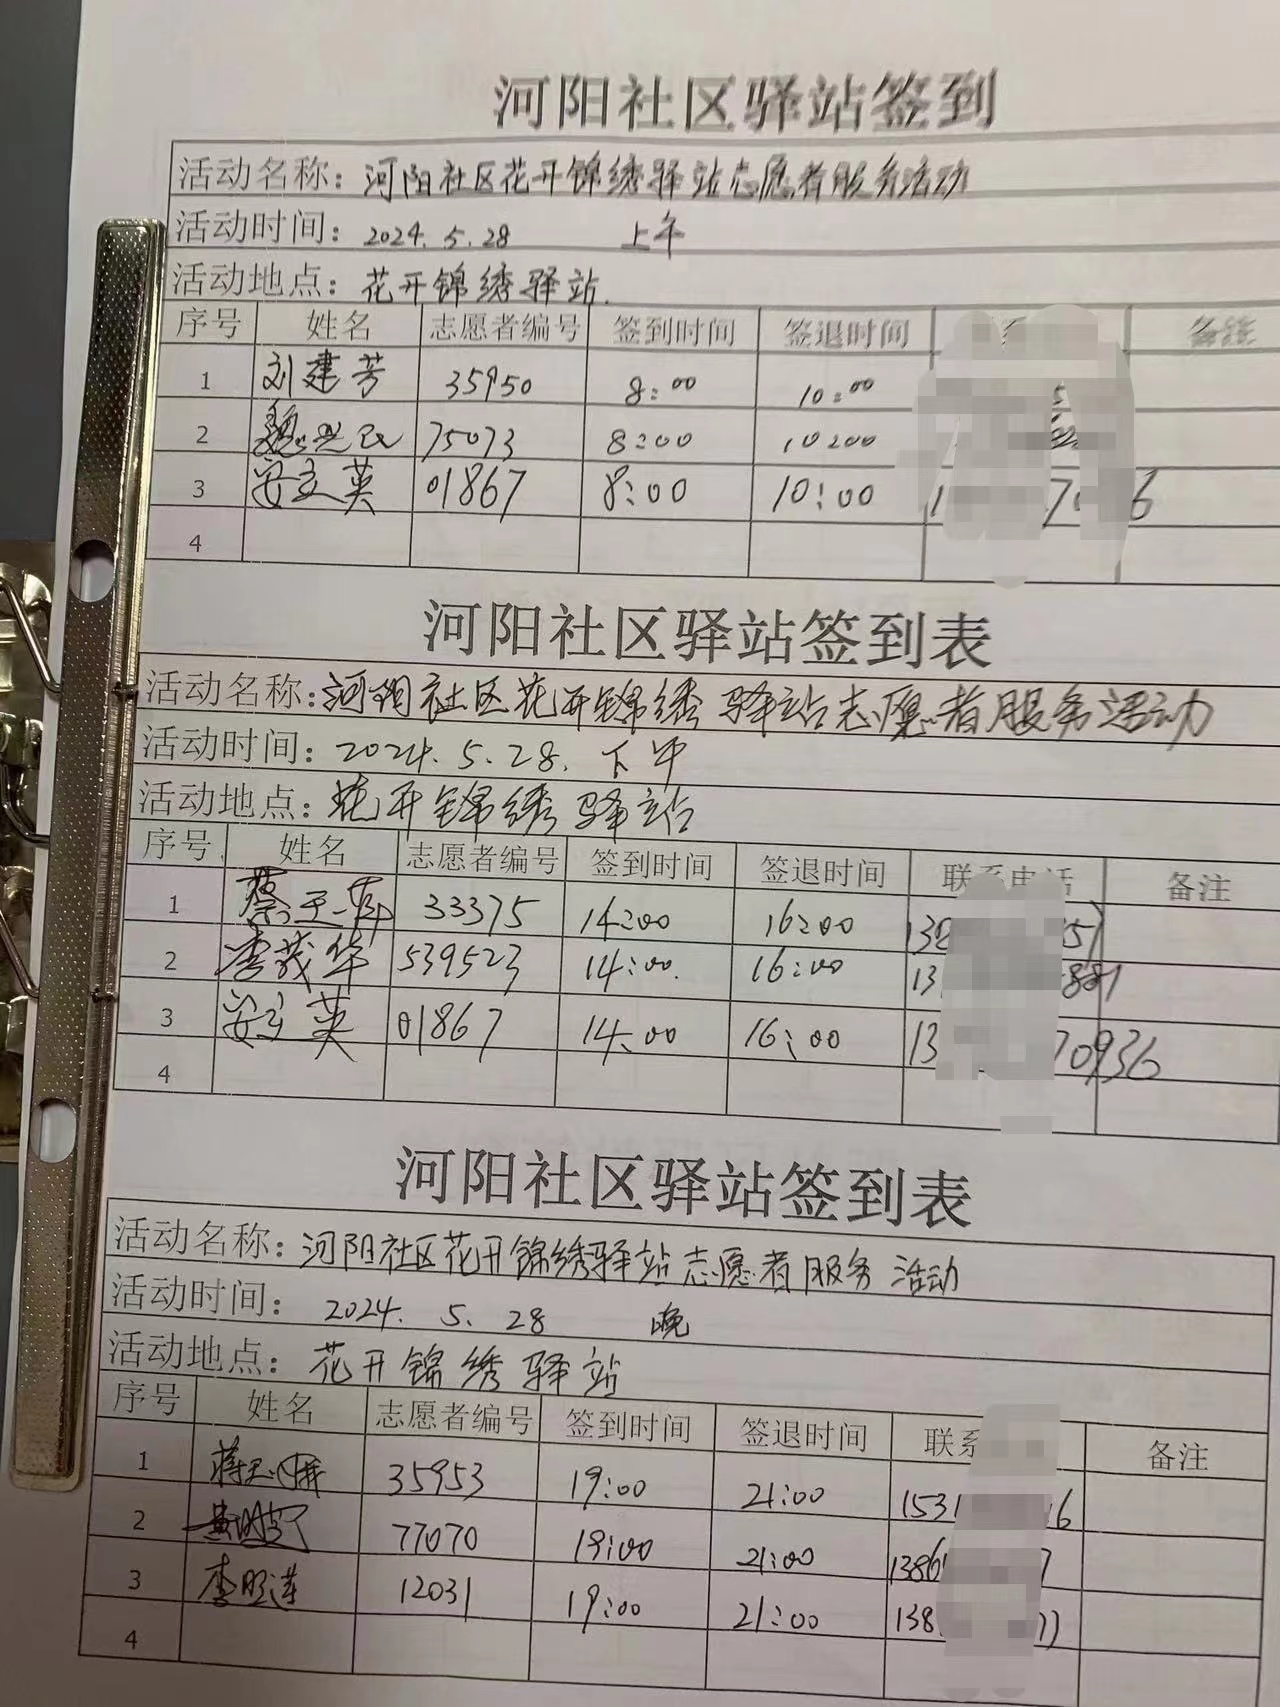 河阳社区驿站签到
活动名称：河阳社区花开锦绣驿站志愿者服务活动
活动时间：2024.5.28 上午
活动地点：花开锦绣驿站.
序号 姓名 志愿者编号 签到时间 签退时间 备注
1 刘建芳 35950 8:00 10:00
2 75073 8:00 10:00
3 安立英 01867 8:00 10:00
4
河阳社区驿站签到表
活动名称：河阳社区花开锦绣驿站志愿者服务活动
活动时间：2024.5.28.下午
活动地点：花开锦绣驿站
序号 姓名 志愿者编号 签到时间 签退时间 联系电话 备注
1 33375 14:00 16:00
2 李茂华 539523 14:00. 16:00
3 安立英 01867 14:00 16:00
4
河阳社区驿站签到表
活动名称：河阳社区花开锦绣驿站志愿者服务活动
活动时间：2024.5.28 晚
活动地点：花开锦绣驿站
序号 姓名 志愿者编号 签到时间 签退时间 联系 备注
1 35953 19:00 21:00
2 77070 19:00 21:00
3 李明莲 12031 19:00 21:00
4